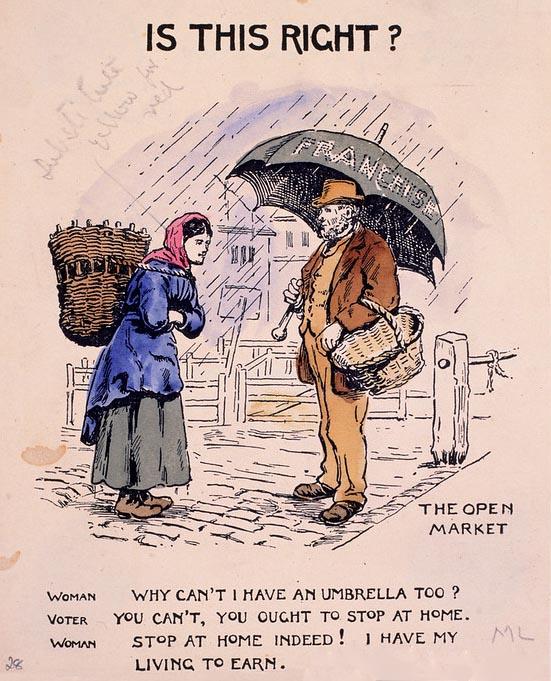 IS THIS RIGHT ?
FRANCHISE
THE OPEN
MARKET
WOMAN WHY CAN'T I HAVE AN UMBRELLA TOO ?
VOTER YOU CAN'T, YOU OUGHT TO STOP AT HOME.
WOMAN STOP AT HOME INDEED ! I HAVE MY
LIVING TO EARN.
ML
28